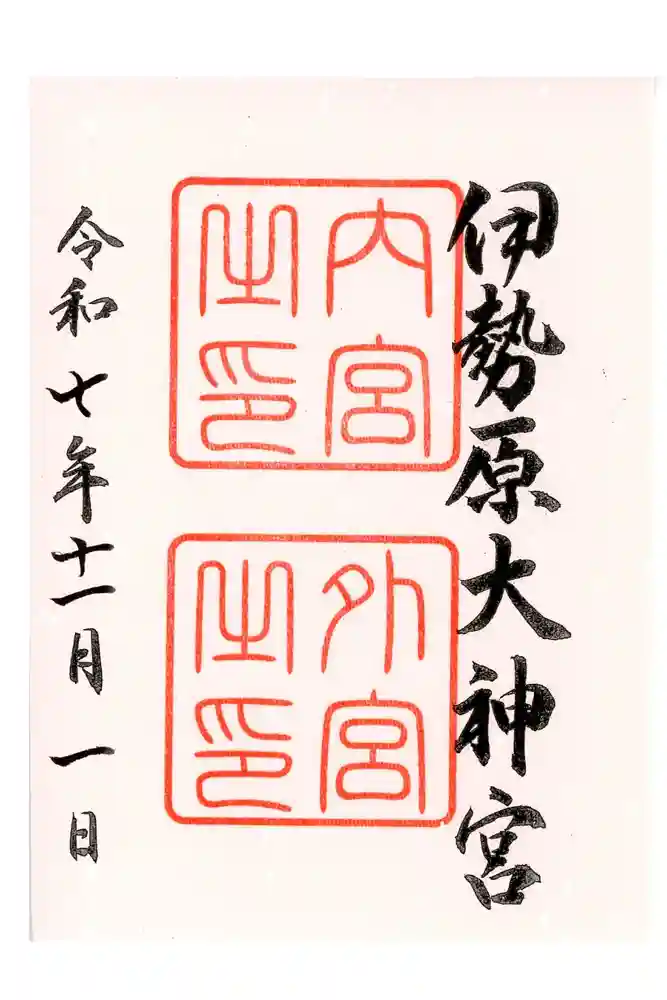 伊勢原大神宮
内宮之印
外宮之印
令和七年十一月一日